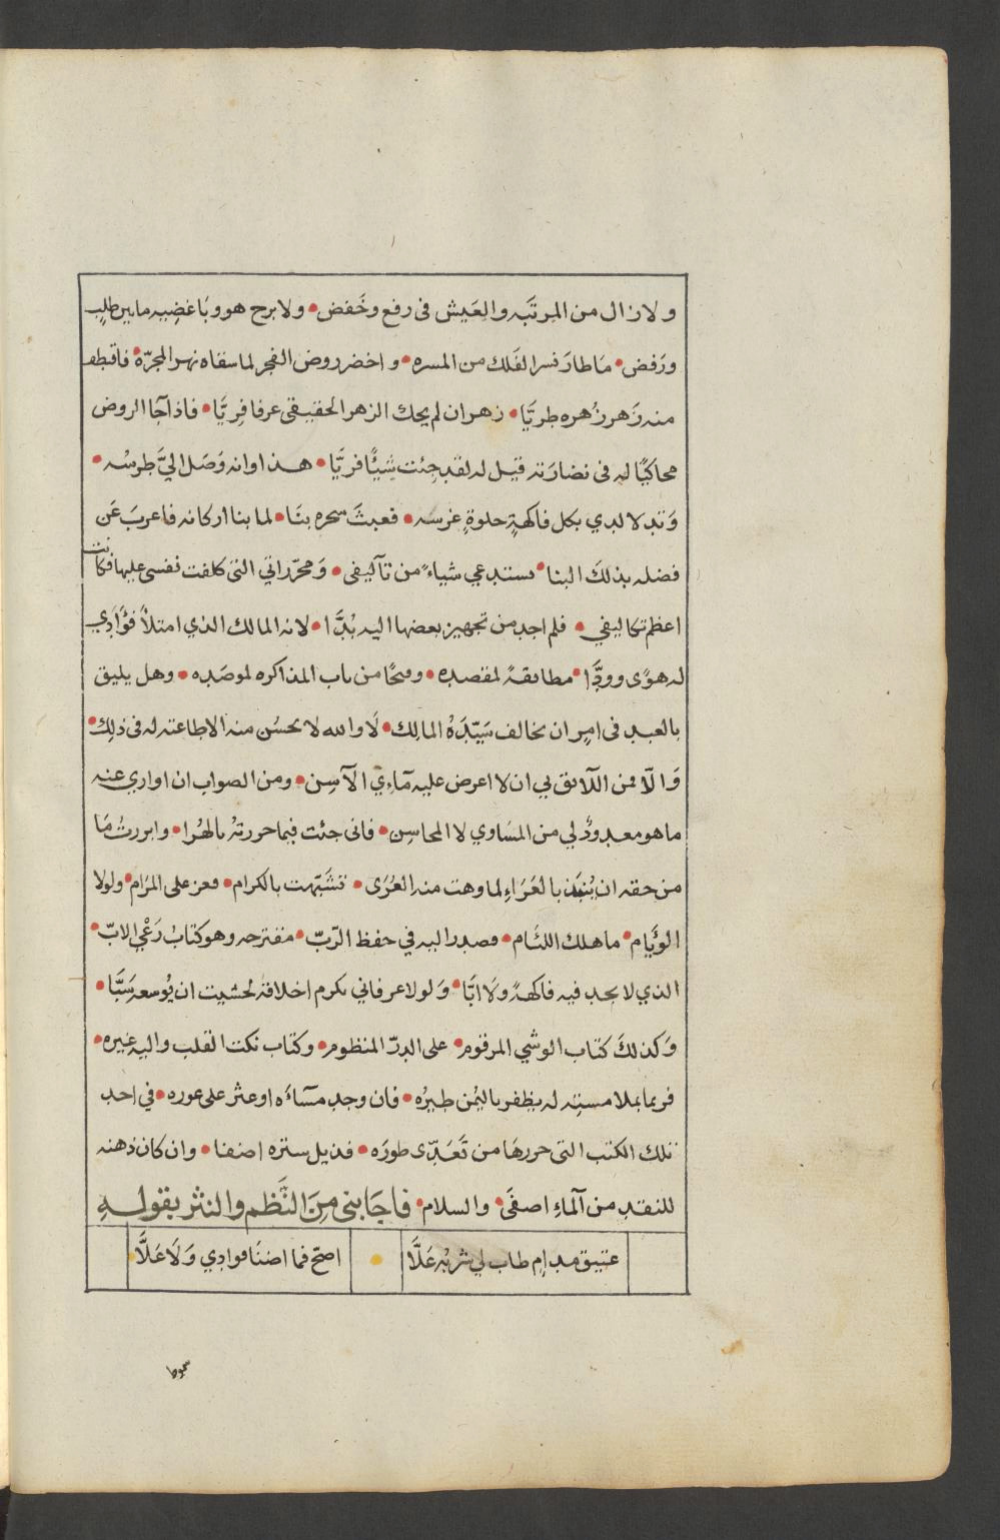 ولا زال من المرتَبه والعَيش فى رفع وخَفض • ولا برح هو وبَاغضِيه ما بين طلبٍ
ورَفض • مَا طارَ نسر الفَلك من المسره • واخضر روض الفجر لما سقاه نهر المجرّة • فاقتطف
منه زَهر زُهره طريَّا • زهر ان لم يحك الزهر الحقيقى عرفا فِريَّا • فاذا جَا الروض
محاكيًا له فى نضارَته قيل له لقد جِئت شِيئًا فريَّا • هذا وانه وَصَل اليَّ طِرسُه •
وَتدلا لدي بكل فاكهةٍ حلوةٍ غرسه • فعبثَ سحره بنَا • لما بنا اركانه فاعربَ عَن
فضله بذلكَ البنا • يستدعي شياءً من تآليفى • وَمحرّراتي التى كلفت نفسى عليها فكانت
اعظم تكاليفي • فلم اجد من تجهيز بعضها اليه بُدَّا • لانه المالك الذي امتلأ فؤَادِي
له هوًى وودَّا • مطابقةً لمقصده • وفتحًا من باب المذاكره لموصَده • وهل يليق
بالعبد فى امرٍ ان يخالف سَيّدَهُ المالِك • لَا والله لا يحسُن منه الا طاعته له فى ذلك •
وَالّا فمن اللّائق بي ان لا اعرض عليه مآءِيَ الآسِن • ومن الصواب ان اوارى عنه
ما هو معدودٌ لي من المسَاوي لا المحاسِن • فانى جئت فيما حررتهُ بالهُرا • وابررتُ مَا
من حقه ان يُنبَذ بالعَرَاءِ لما وهت منه العُرَى • تشَبّهت بالكرام • فعز على المرَام • ولولا
الوِيَام • ما هلك اللئَام • فصدر اليه في حفظ الرّبّ • مقترحه وهو كتابُ رَعْي الابّ •
الذي لا يجد فيه فاكهةً ولَا ابَّا • وَلولا عرفاني بكرم اخلاقه لخشيت ان يُوسعه سَبَّا •
وَكذلكَ كتاب الوشي المرقوم • على الدرّ المنظوم • وكتاب نكت القلب واليه غيره •
فربما بملامسته له يظفر باليُمن طيرُه • فان وجد مسآءَه او عثر على عوره • في احد
تلك الكتب التى حررهَا من تَعَدّى طورَه • فذيل ستره اضفا • وان كان ذهنه
للنقدِ من آلماءِ اصفَى • والسلام • فاجَابنى مِنَ النَّظم والنثر بقولهِ
عتيق مدامٍ طاب لي شربُه عَلَّا • اصَحّ فما اضنَا فوادِي وَلَا عَلَّا